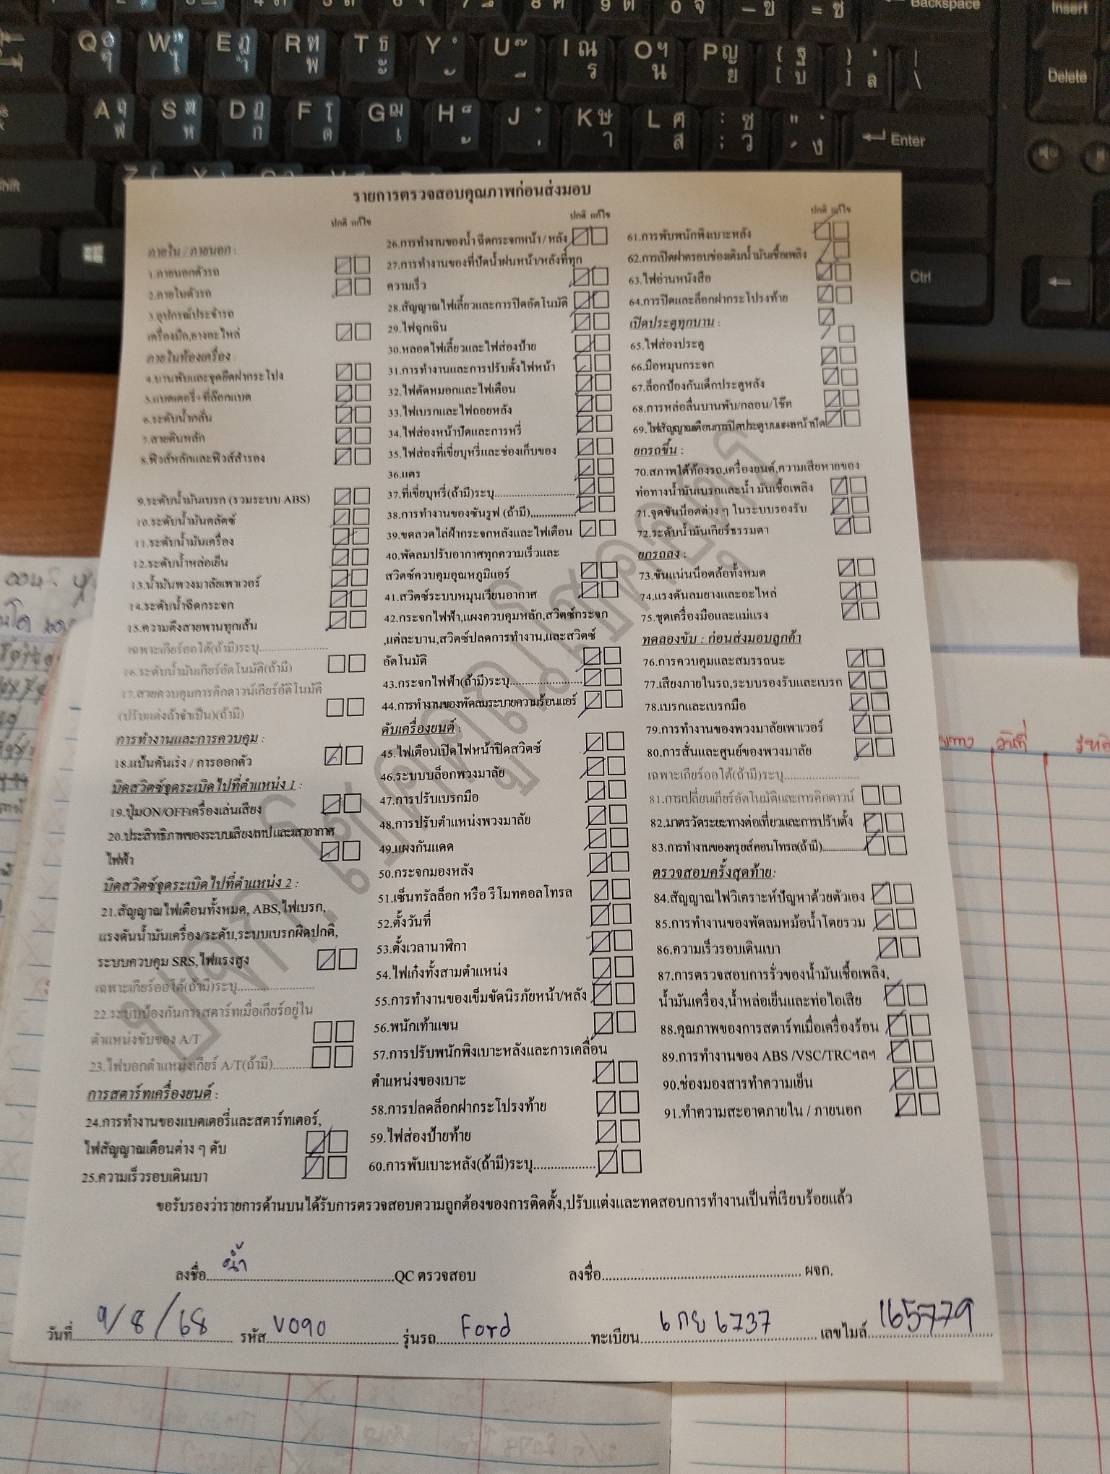 รายการตรวจสอบคุณภาพก่อนส่งมอบ
ปกติ แก้ไข
ภายใน / ภายนอก :
1.ภายนอกตัวรถ
2.ภายในตัวรถ
3.อุปกรณ์ประจำรถ
เครื่องมือ,ยางอะไหล่
ภายในห้องเครื่อง :
4.บานพับและจุดยึดฝากระโปรง
5.แบตเตอรี่+ที่ล็อกแบต
6.ระดับน้ำกลั่น
7.สายดินหลัก
8.ฟิวส์หลักและฟิวส์สำรอง
9.ระดับน้ำมันเบรก (รวมระบบ ABS)
10.ระดับน้ำมันคลัตช์
11.ระดับน้ำมันเครื่อง
12.ระดับน้ำหล่อเย็น
13.น้ำมันพวงมาลัยเพาเวอร์
14.ระดับน้ำฉีดกระจก
15.ความตึงสายพานทุกเส้น
เฉพาะเกียร์ออโต้(ถ้ามี)ระบุ
16.ระดับน้ำมันเกียร์อัตโนมัติ(ถ้ามี)
17.สายควบคุมการคิกดาวน์เกียร์อัติโนมัติ
(ปรับแต่งถ้าจำเป็น)(ถ้ามี)
การทำงานและการควบคุม :
18.แป้นคันเร่ง / การออกตัว
บิดสวิตซ์จุดระเบิดไปที่ตำแหน่ง 1 :
19.ปุ่มON/OFFเครื่องเล่นเสียง
20.ประสิทธิภาพของระบบเสียงเทปและเสาอากาศ
ไฟฟ้า
บิดสวิตซ์จุดระเบิดไปที่ตำแหน่ง 2 :
21.สัญญาณไฟเตือนทั้งหมด, ABS,ไฟเบรก,
แรงดันน้ำมันเครื่อง/ระดับ,ระบบเบรกผิดปกติ,
ระบบควบคุม SRS,ไฟแรงสูง
เฉพาะเกียร์ออโต้(ถ้ามี)ระบุ
22.ระบบป้องกันการสตาร์ทเมื่อเกียร์อยู่ใน
ตำแหน่งขับของ A/T
23.ไฟบอกตำแหน่งเกียร์ A/T(ถ้ามี)
การสตาร์ทเครื่องยนต์ :
24.การทำงานของแบตเตอรี่และสตาร์ทเตอร์,
ไฟสัญญาณเตือนต่าง ๆ ดับ
25.ความเร็วรอบเดินเบา
ปกติ แก้ไข
26.การทำงานของน้ำฉีดกระจกหน้า/หลัง
27.การทำงานของที่ปัดน้ำฝนหน้า/หลังที่ทุก
ความเร็ว
28.สัญญาณไฟเลี้ยวและการปิดอัตโนมัติ
29.ไฟฉุกเฉิน
30.หลอดไฟเลี้ยวและไฟส่องป้าย
31.การทำงานและการปรับตั้งไฟหน้า
32.ไฟตัดหมอกและไฟเตือน
33.ไฟเบรกและไฟถอยหลัง
34.ไฟส่องหน้าปัดและการหรี่
35.ไฟส่องที่เขี่ยบุหรี่และช่องเก็บของ
36.แตร
37.ที่เขี่ยบุหรี่(ถ้ามี)ระบุ
38.การทำงานของซันรูฟ (ถ้ามี)
39.ขดลวดไล่ฝ้ากระจกหลังและไฟเตือน
40.พัดลมปรับอากาศทุกความเร็วและ
สวิตซ์ควบคุมอุณหภูมิแอร์
41.สวิตซ์ระบบหมุนเวียนอากาศ
42.กระจกไฟฟ้า,แผงควบคุมหลัก,สวิตซ์กระจก
,แต่ละบาน,สวิตซ์ปลดการทำงาน,และสวิตซ์
อัตโนมัติ
43.กระจกไฟฟ้า(ถ้ามี)ระบุ
44.การทำงานของพัดลมระบายความร้อนแอร์
ดับเครื่องยนต์ :
45.ไฟเตือนเปิดไฟหน้าปิดสวิตซ์
46.ระบบบล็อกพวงมาลัย
47.การปรับเบรกมือ
48.การปรับตำแหน่งพวงมาลัย
49.แผงกันแดด
50.กระจกมองหลัง
51.เซ็นทรัลล็อก หรือ รีโมทคอลโทรล
52.ตั้งวันที่
53.ตั้งเวลานาฬิกา
54.ไฟเก๋งทั้งสามตำแหน่ง
55.การทำงานของเข็มขัดนิรภัยหน้า/หลัง
56.พนักเท้าแขน
57.การปรับพนักพิงเบาะหลังและการเคลื่อน
ตำแหน่งของเบาะ
58.การปลดล็อกฝากระโปรงท้าย
59.ไฟส่องป้ายท้าย
60.การพับเบาะหลัง(ถ้ามี)ระบุ
ปกติ แก้ไข
61.การพับพนักพิงเบาะหลัง
62.การเปิดฝาครอบช่องเติมน้ำมันเชื้อเพลิง
63.ไฟอ่านหนังสือ
64.การปิดและล็อกฝากระโปรงท้าย
เปิดประตูทุกบาน :
65.ไฟส่องประตู
66.มือหมุนกระจก
67.ล็อกป้องกันเด็กประตูหลัง
68.การหล่อลื่นบานพับ/กลอน/โช๊ค
69.ไฟสัญญาณเตือนการปิดประตูบนแผงหน้าปัด
ยกรถขึ้น :
70.สภาพใต้ท้องรถ,เครื่องยนต์,ความเสียหายของ
ท่อทางน้ำมันเบรกและน้ำมันเชื้อเพลิง
71.จุดขันน็อตต่าง ๆ ในระบบรองรับ
72.ระดับน้ำมันเกียร์ธรรมดา
ยกรถลง :
73.ขันแน่นน็อตล้อทั้งหมด
74.แรงดันลมยางและอะไหล่
75.ชุดเครื่องมือและแม่แรง
ทดลองขับ : ก่อนส่งมอบลูกค้า
76.การควบคุมและสมรรถนะ
77.เสียงภายในรถ,ระบบรองรับและเบรก
78.เบรกและเบรกมือ
79.การทำงานของพวงมาลัยเพาเวอร์
80.การสั่นและศูนย์ของพวงมาลัย
เฉพาะเกียร์ออโต้(ถ้ามี)ระบุ
81.การเปลี่ยนเกียร์อัตโนมัติและการคิกดาวน์
82.มาตรวัดระยะทางต่อเที่ยวและการปรับตั้ง
83.การทำงานของครูสส์คอนโทรล(ถ้ามี)
ตรวจสอบครั้งสุดท้าย:
84.สัญญาณไฟวิเคราะห์ปัญหาด้วยตัวเอง
85.การทำงานของพัดลมหม้อน้ำโดยรวม
86.ความเร็วรอบเดินเบา
87.การตรวจสอบการรั่วของน้ำมันเชื้อเพลิง,
น้ำมันเครื่อง,น้ำหล่อเย็นและท่อไอเสีย
88.คุณภาพของการสตาร์ทเมื่อเครื่องร้อน
89.การทำงานของ ABS /VSC/TRCฯลฯ
90.ช่องมองสารทำความเย็น
91.ทำความสะอาดภายใน / ภายนอก
ขอรับรองว่ารายการด้านบนได้รับการตรวจสอบความถูกต้องของการติดตั้ง,ปรับแต่งและทดสอบการทำงานเป็นที่เรียบร้อยแล้ว
ลงชื่อ น้ำ QC ตรวจสอบ ลงชื่อ ผจก.
วันที่ 9/8/68 รหัส V090 รุ่นรถ Ford ทะเบียน 6 กย 6737 เลขไมล์ 165779
Backspace
Insert
Delete
Enter
Ctrl
วันที่